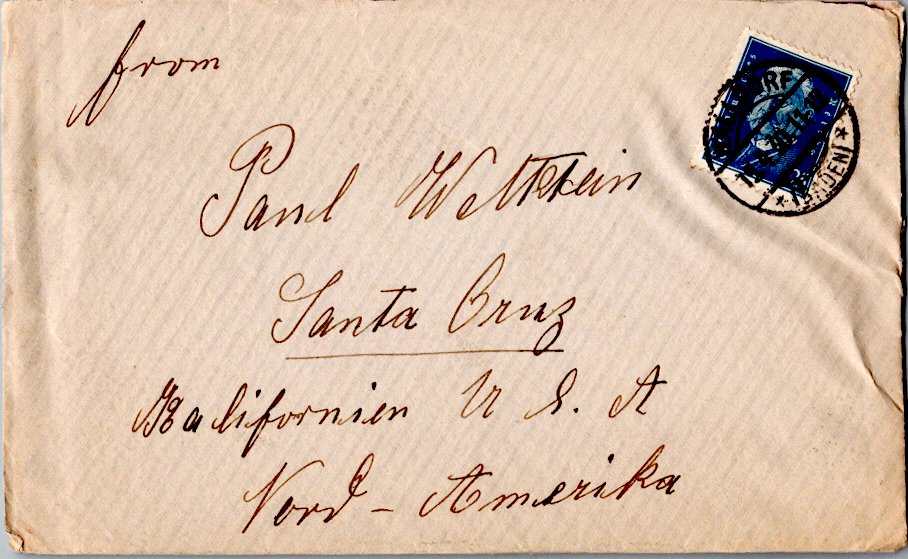 from
Paul Wettstein
Santa Cruz
Kalifornien U. S. A
Nord - Amerika
(BADEN)